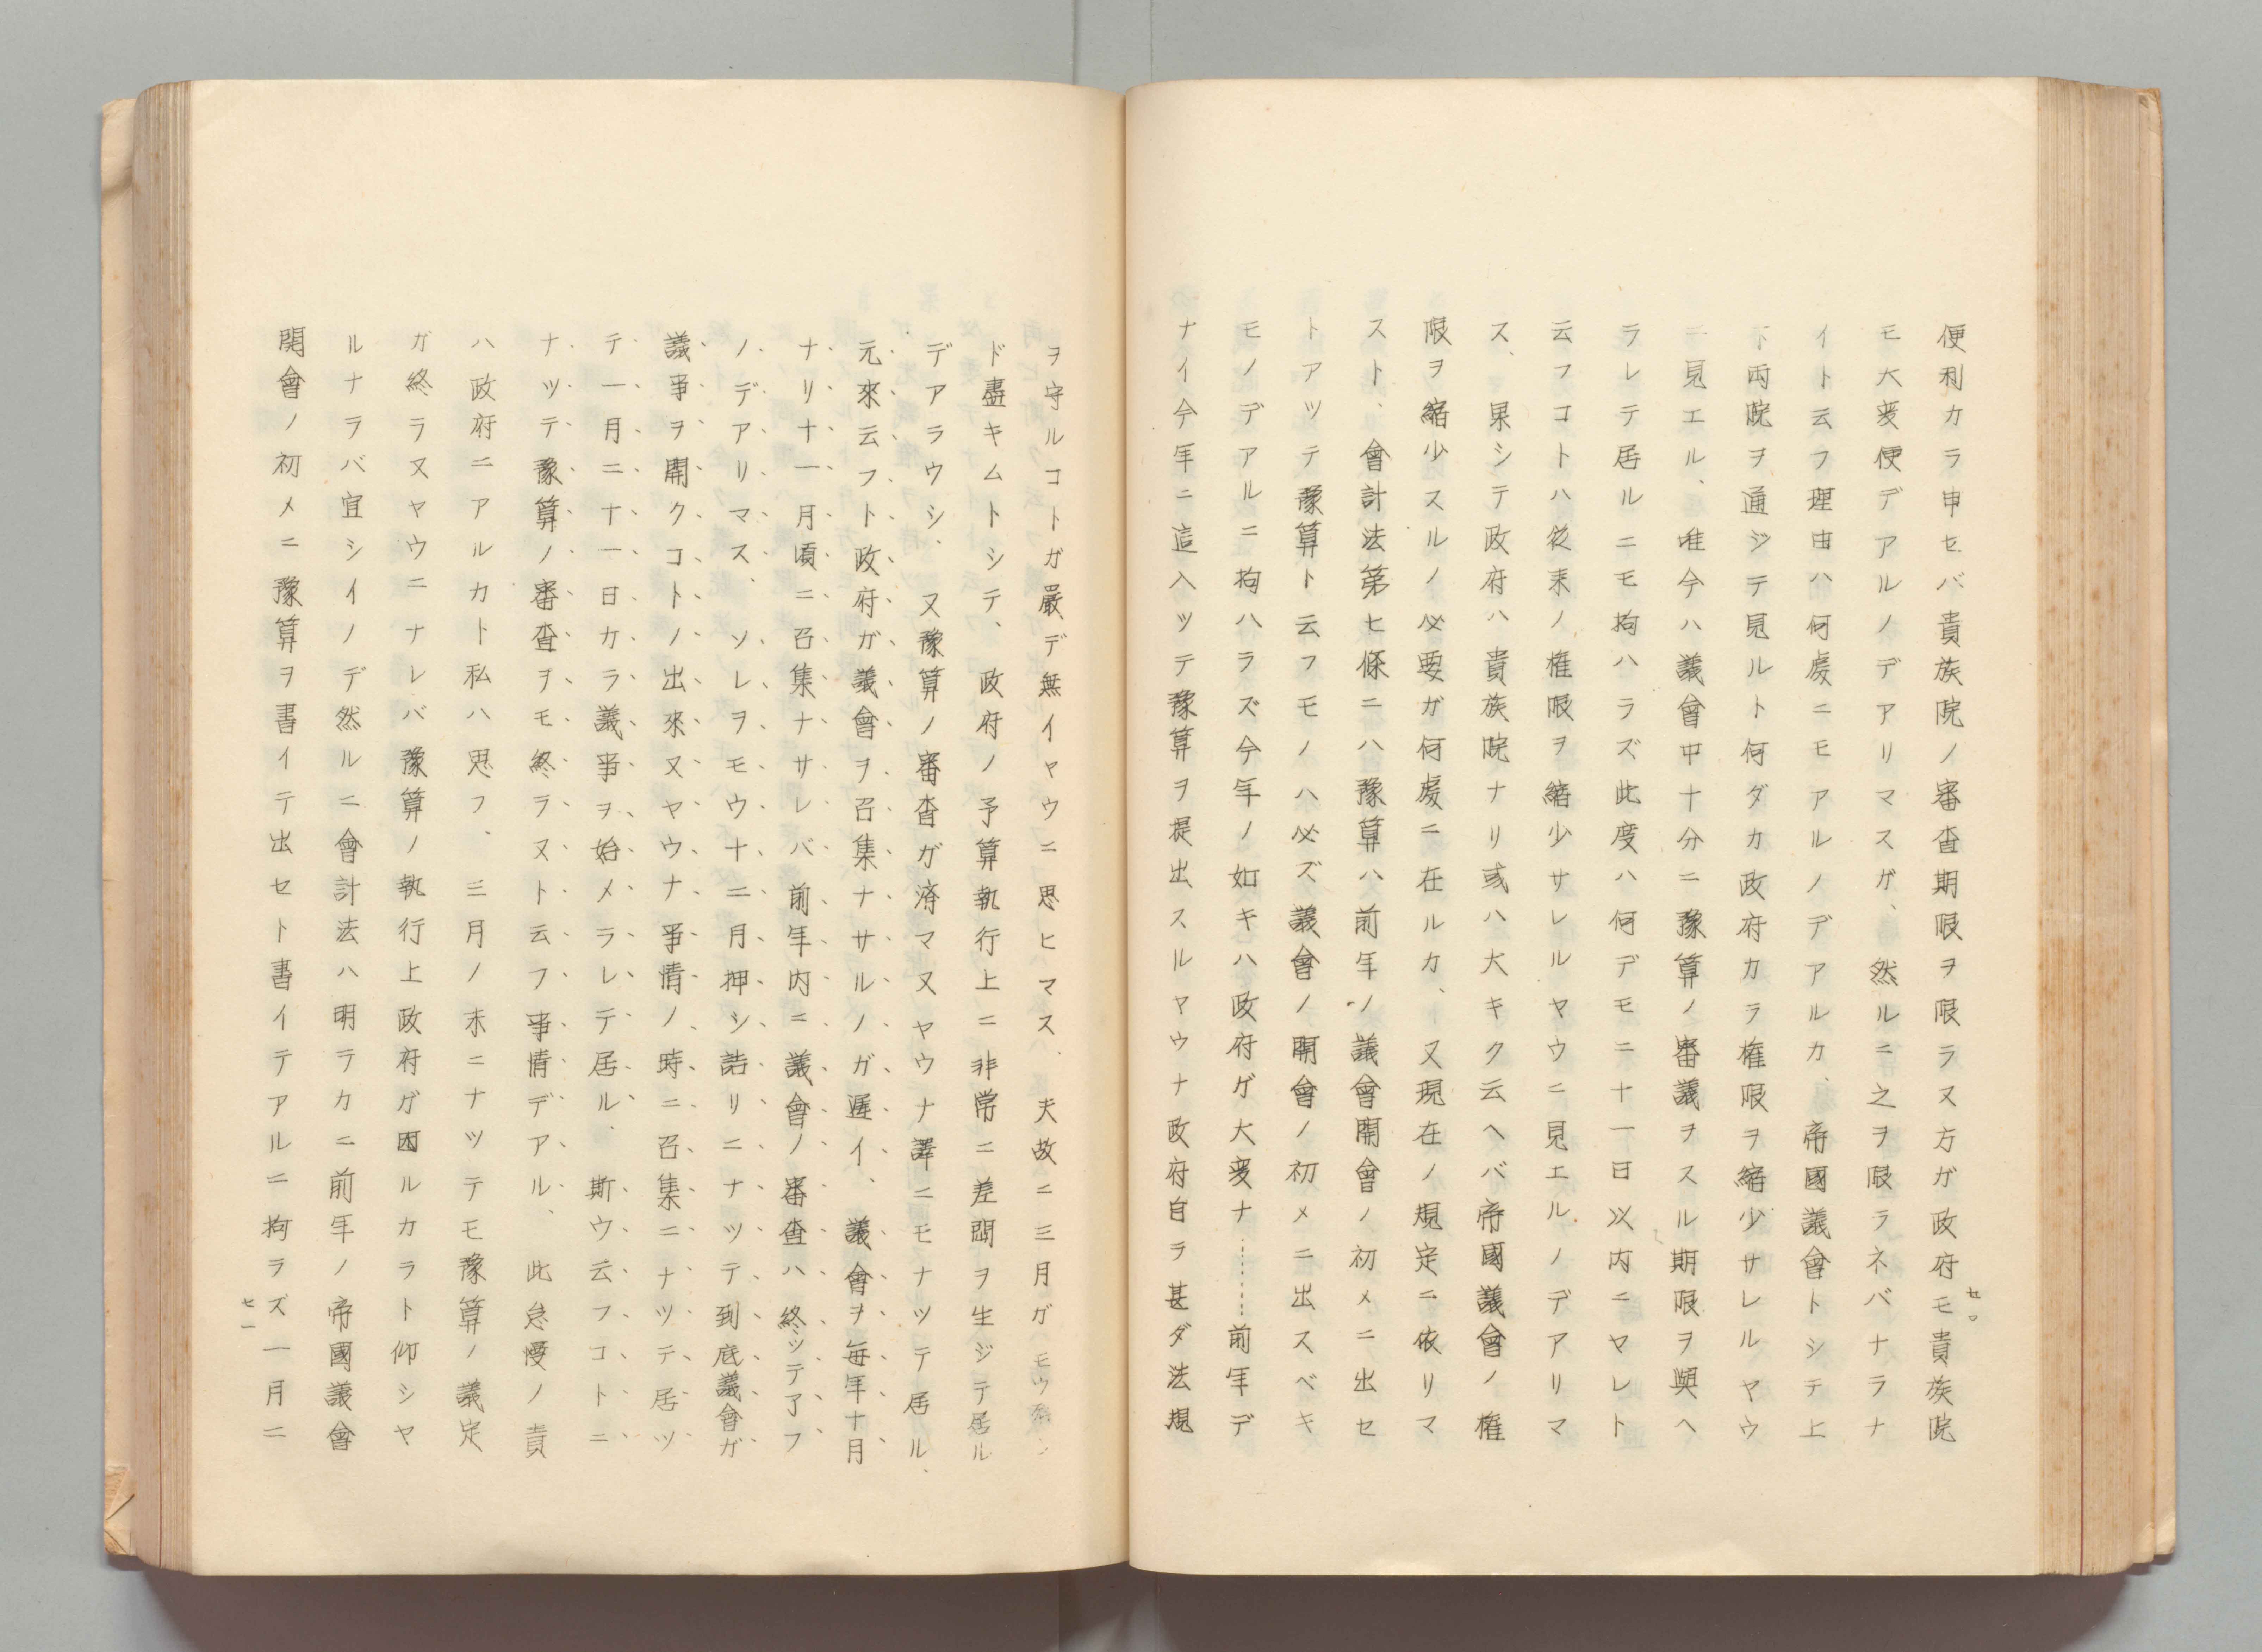 便利カラ申セバ貴族院ノ審査期限ヲ限ラヌ方ガ政府モ貴族院
モ大変便デアルノデアリマスガ、然ルニ之ヲ限ラネバナラナ
イト云フ理由ハ何處ニモアルノデアルカ、帝國議會トシテ上
下両院ヲ通ジテ見ルト何ダカ政府カラ権限ヲ縮少サレルヤウ
ニ見エル、唯今ハ議會中十分ニ豫算ノ審議ヲスル期限ヲ與ヘ
ラレテ居ルニモ拘ハラズ此度ハ何デモ二十一日以内ニヤレト
云フコトハ従来ノ権限ヲ縮少サレルヤウニ見エルノデアリマ
ス、果シテ政府ハ貴族院ナリ或ハ大キク云ヘバ帝國議會ノ権
限ヲ縮少スルノ必要ガ何處ニ在ルカ、又現在ノ規定ニ依リマ
スト、會計法第七條ニハ豫算ハ前年ノ議會開會ノ初メニ出セ
トアツテ豫算ト云フモノハ必ズ議會ノ開會ノ初メニ出スベキ
モノデアルニ拘ハラズ今年ノ如キハ政府ガ大変ナ………前年デ
ナイ今年ニ這入ツテ豫算ヲ提出スルヤウナ政府自ラ甚ダ法規
七〇
ヲ守ルコトガ嚴デ無イヤウニ思ヒマス、夫故ニ三月ガモウ殆ン
ド盡キムトシテ、政府ノ予算執行上ニ非常ニ差閊ヲ生ジテ居ル
デアラウシ、又豫算ノ審査ガ済マヌヤウナ譯ニモナツテ居ル、
元來云フト政府ガ議會ヲ召集ナサルノガ遅イ、議會ヲ毎年十月
ナリ十一月頃ニ召集ナサレバ前年内ニ議會ノ審査ハ終ツテ了フ
ノデアリマス、ソレヲモウ十二月押シ詰リニナツテ到底議會ガ
議事ヲ開クコトノ出來ヌヤウナ事情ノ時ニ召集ニナツテ居ツ
テ一月二十一日カラ議事ヲ始メラレテ居ル、斯ウ云フコトニ
ナツテ豫算ノ審査ヲモ終ラヌト云フ事情デアル、此怠慢ノ責
ハ政府ニアルカト私ハ思フ、三月ノ末ニナツテモ豫算ノ議定
ガ終ラヌヤウニナレバ豫算ノ執行上政府ガ困ルカラト仰シヤ
ルナラバ宜シイノデ然ルニ會計法ハ明ラカニ前年ノ帝國議會
開會ノ初メニ豫算ヲ書イテ出セト書イテアルニ拘ラズ一月ニ
七一